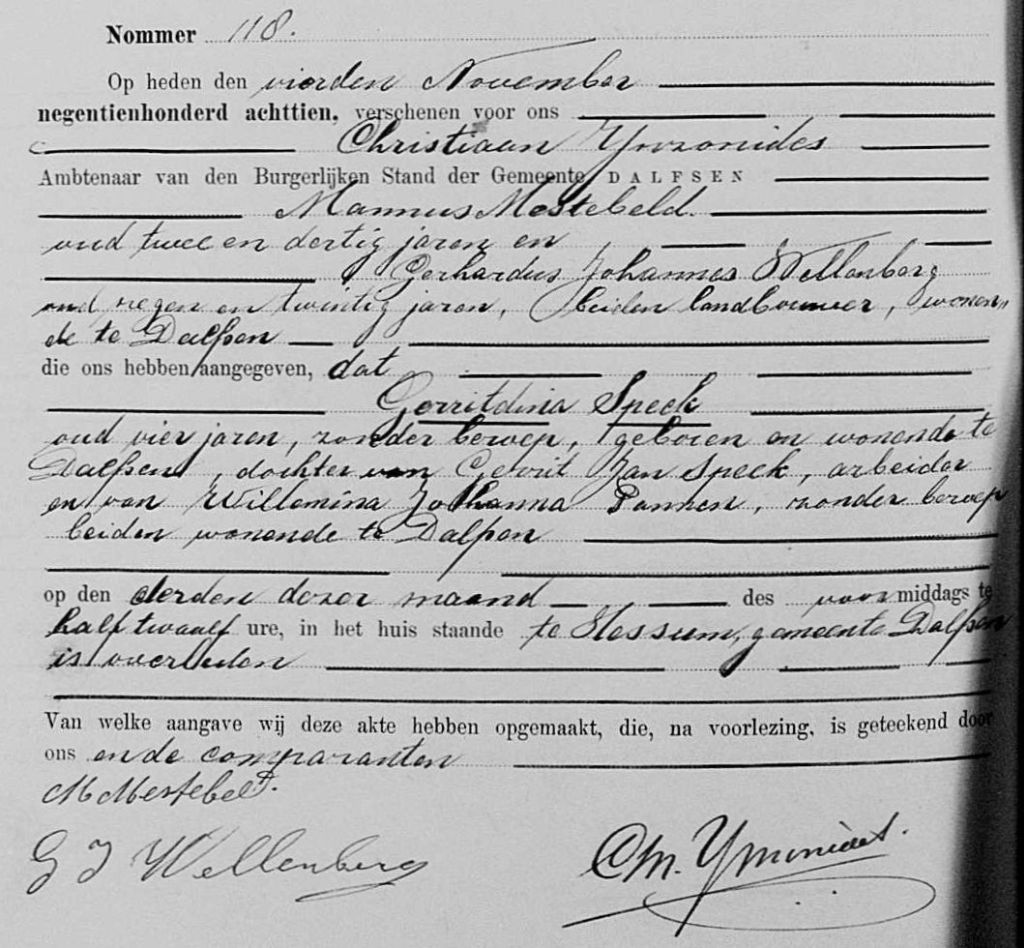 Nommer 118.
Op heden den vierden November
negentienhonderd achttien, verschenen voor ons
Christiaan Ymzonides
Ambtenaar van den Burgerlijken Stand der Gemeente DALFSEN
Mannus Mestebeld
oud twee en dertig jaren en
Gerhardus Johannes Wellenberg
oud negen en twintig jaren, beiden landbouwer, wonen„
de te Dalfsen
die ons hebben aangegeven, dat
Gerritdina Speek
oud vier jaren, zonder beroep, geboren en wonende te
Dalfsen, dochter van Gerrit Jan Speek, arbeider
en van Willemina Johanna Pannen, zonder beroep
beiden wonende te Dalfsen
op den derden dezer maand des voormiddags te
half twaalf ure, in het huis staande te Hessum, gemeente Dalfsen
is overleden
Van welke aangave wij deze akte hebben opgemaakt, die, na voorlezing, is geteekend door
ons en de comparanten
M Mestebeld.
G J Wellenberg